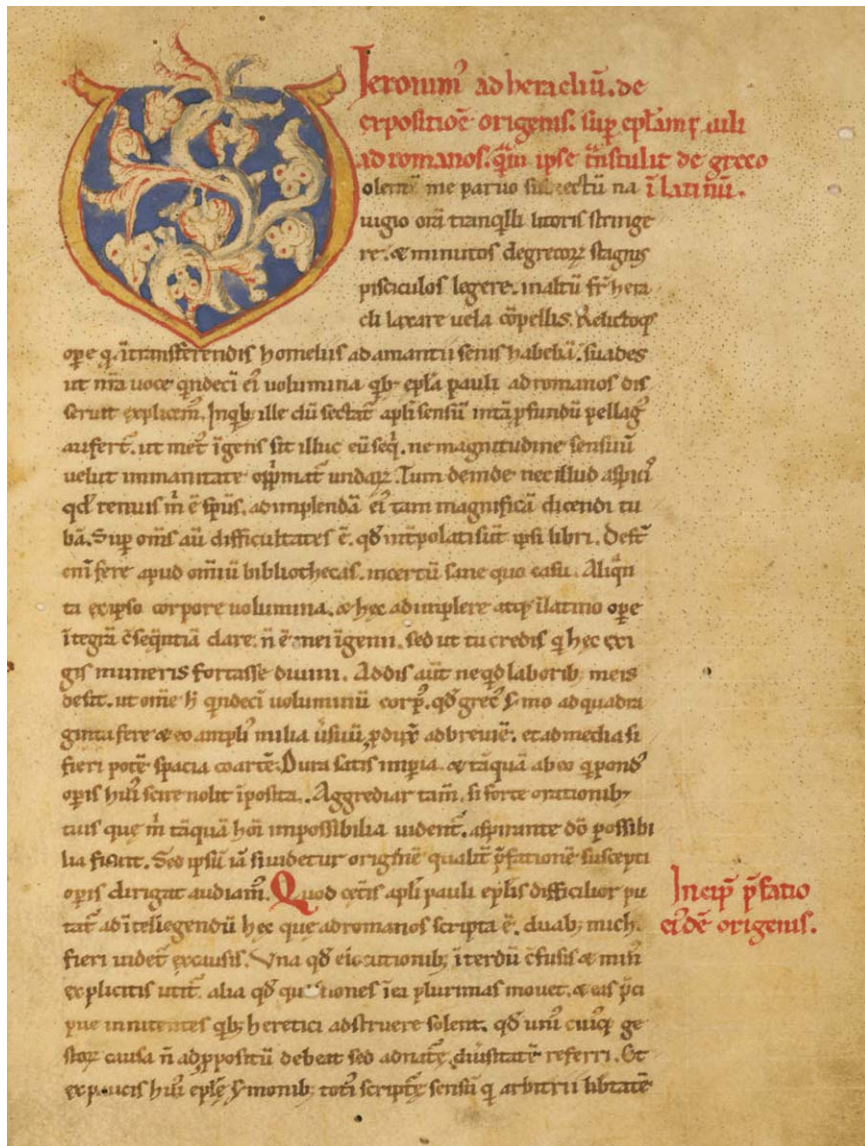 Ieronim' ad heracliū. de
expositiōe origenis. sup epłam pauli
ad romanos. quā ipse t̄nstulit de greco
ī latinū.
olentē me paruo subuectū na
uigio orā tranqlli litoris stringe
re. & minutos de grecoꝝ stagnis
pisciculos legere. in altū fr̄ hera
cli laxare uela cōpellis. Relictoq;
opere q̇ ī transferendis homeliis adamantii senis habebā. suades
ut nr̄a uoce qndecī ei' uolumina qb; epła pauli ad romanos dis
seruit explicem'. In qb; ille dū sectat̄ apłi sensū intā ꝓfundū pellag'
aufert̄. ut met' īgens sit illuc eū seq̇. ne magnitudine sensuū
uelut immanitate opp̄mat̄ undaꝝ. Tum deinde nec illud aspicis
qd̄ tenuis m̄ ē sp̄us. ad implendā ei' tam magnificā dicendi tu
bā. Sup om̄s aū difficultates ē. qd̄ int̄polati sūt ipsi libri. Desūt
enī fere apud omiū bibliothecas. incertū sane quo casu. Aliqn̄
ta ex ipso corpore uolumina. & hec adimplere atq; ī latino opere
ītegrā c̄seq̄ntiā dare. n̄ ē mei īgenii. sed ut tu credis q̇ hec exi
gis muneris fortasse diuini. Addis aūt ne qd laborib; meis
desit. ut om̄e h̄ qndecī uoluminū corp'. qd̄ grec' s̄mo ad quadra
ginta fere & eo ampli' milia ūsuū ꝓduxit adbreuiē. et ad media si
fieri potē spacia coartē. Dura satis imperia. & tāquā ab eo q̇ pond'
operis hui' scire nolit īposita. Aggrediar tam̄. si forte orationib;
tuis que m̄ tāquā hoī impossibilia uident̄. aspirante dō possibi
lia fiant. Sed ipsū iā si uidetur origenē qualit̄ p̄fationē suscepti
operis dirigat audiam'. Quod cet̄is apłi pauli epłis difficilior pu
tat̄ ad ītelligendū hec que ad romanos scripta ē. duab; m
fieri uidet̄ ex causis. Una qd̄ elocutionib; īterdū c̄fusis & min'
explicitis utit̄. alia qd̄ questiones ī ea plurimas mouet. & eas p̄ci
pue innitentes qb; heretici adstruere solent. qd̄ uni' cuiusq; ge
storꝝ causa n̄ ad ꝓpositū debeat sed ad natē diūsitatē referri. Et
ex paucis hui' epłę s̄monib; toti' scripturę sensū q̇ arbitrii libtatē
Incip̄ p̄fatio
ei'dē origenis.